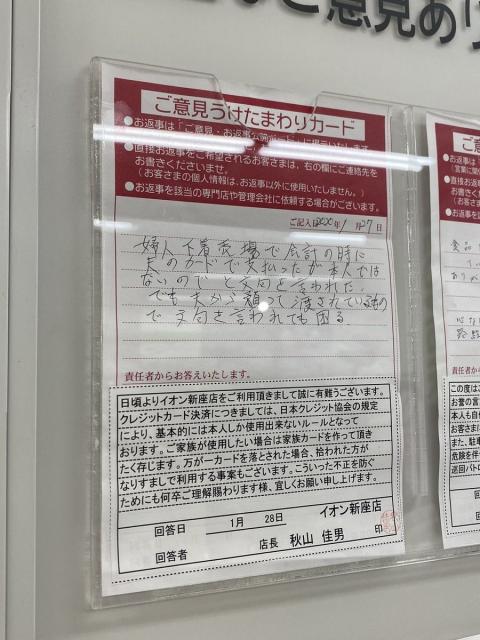 ご意見あ
ご意見うけたまわりカード
●お返事は「ご意見・お返事公開ボード」に掲示いたします
●直接お返事をご希望されるお客さまは、右の欄にご連絡先を
お書きくださいませ。
(お客さまの個人情報は、お返事以外に使用いたしません。)
●お返事を該当の専門店や管理会社に依頼する場合がございます。
ご記入日 年1月27日
婦人下着売場で会計の時に
夫のカードで支払ったが本人では
ないのでと文句を言われた.
でも夫から頼って渡されているもの
で文句を言われても困る.
責任者からお答えいたします。
日頃よりイオン新座店をご利用頂きまして誠に有難うございます。
クレジットカード決済につきましては、日本クレジット協会の規定
により、基本的には本人しか使用出来ないルールとなって
おります。ご家族が使用したい場合は家族カードを作って頂き
たく存じます。万が一カードを落とされた場合、拾われた方が
なりすまして利用する事案もございます。こういった不正を防ぐ
ためにも何卒ご理解賜わります様、宜しくお願い申し上げます。
回答日 1月 28日 イオン新座店
回答者 店長 秋山 佳男 印
ご意
●お返事は
●直接お返
お書きくだ
(お客さま
●お返事を
この度はご
お誉の言
本人も自
お客さまに
また、駐車
危険を伴
巡回パトロ
回答
回答